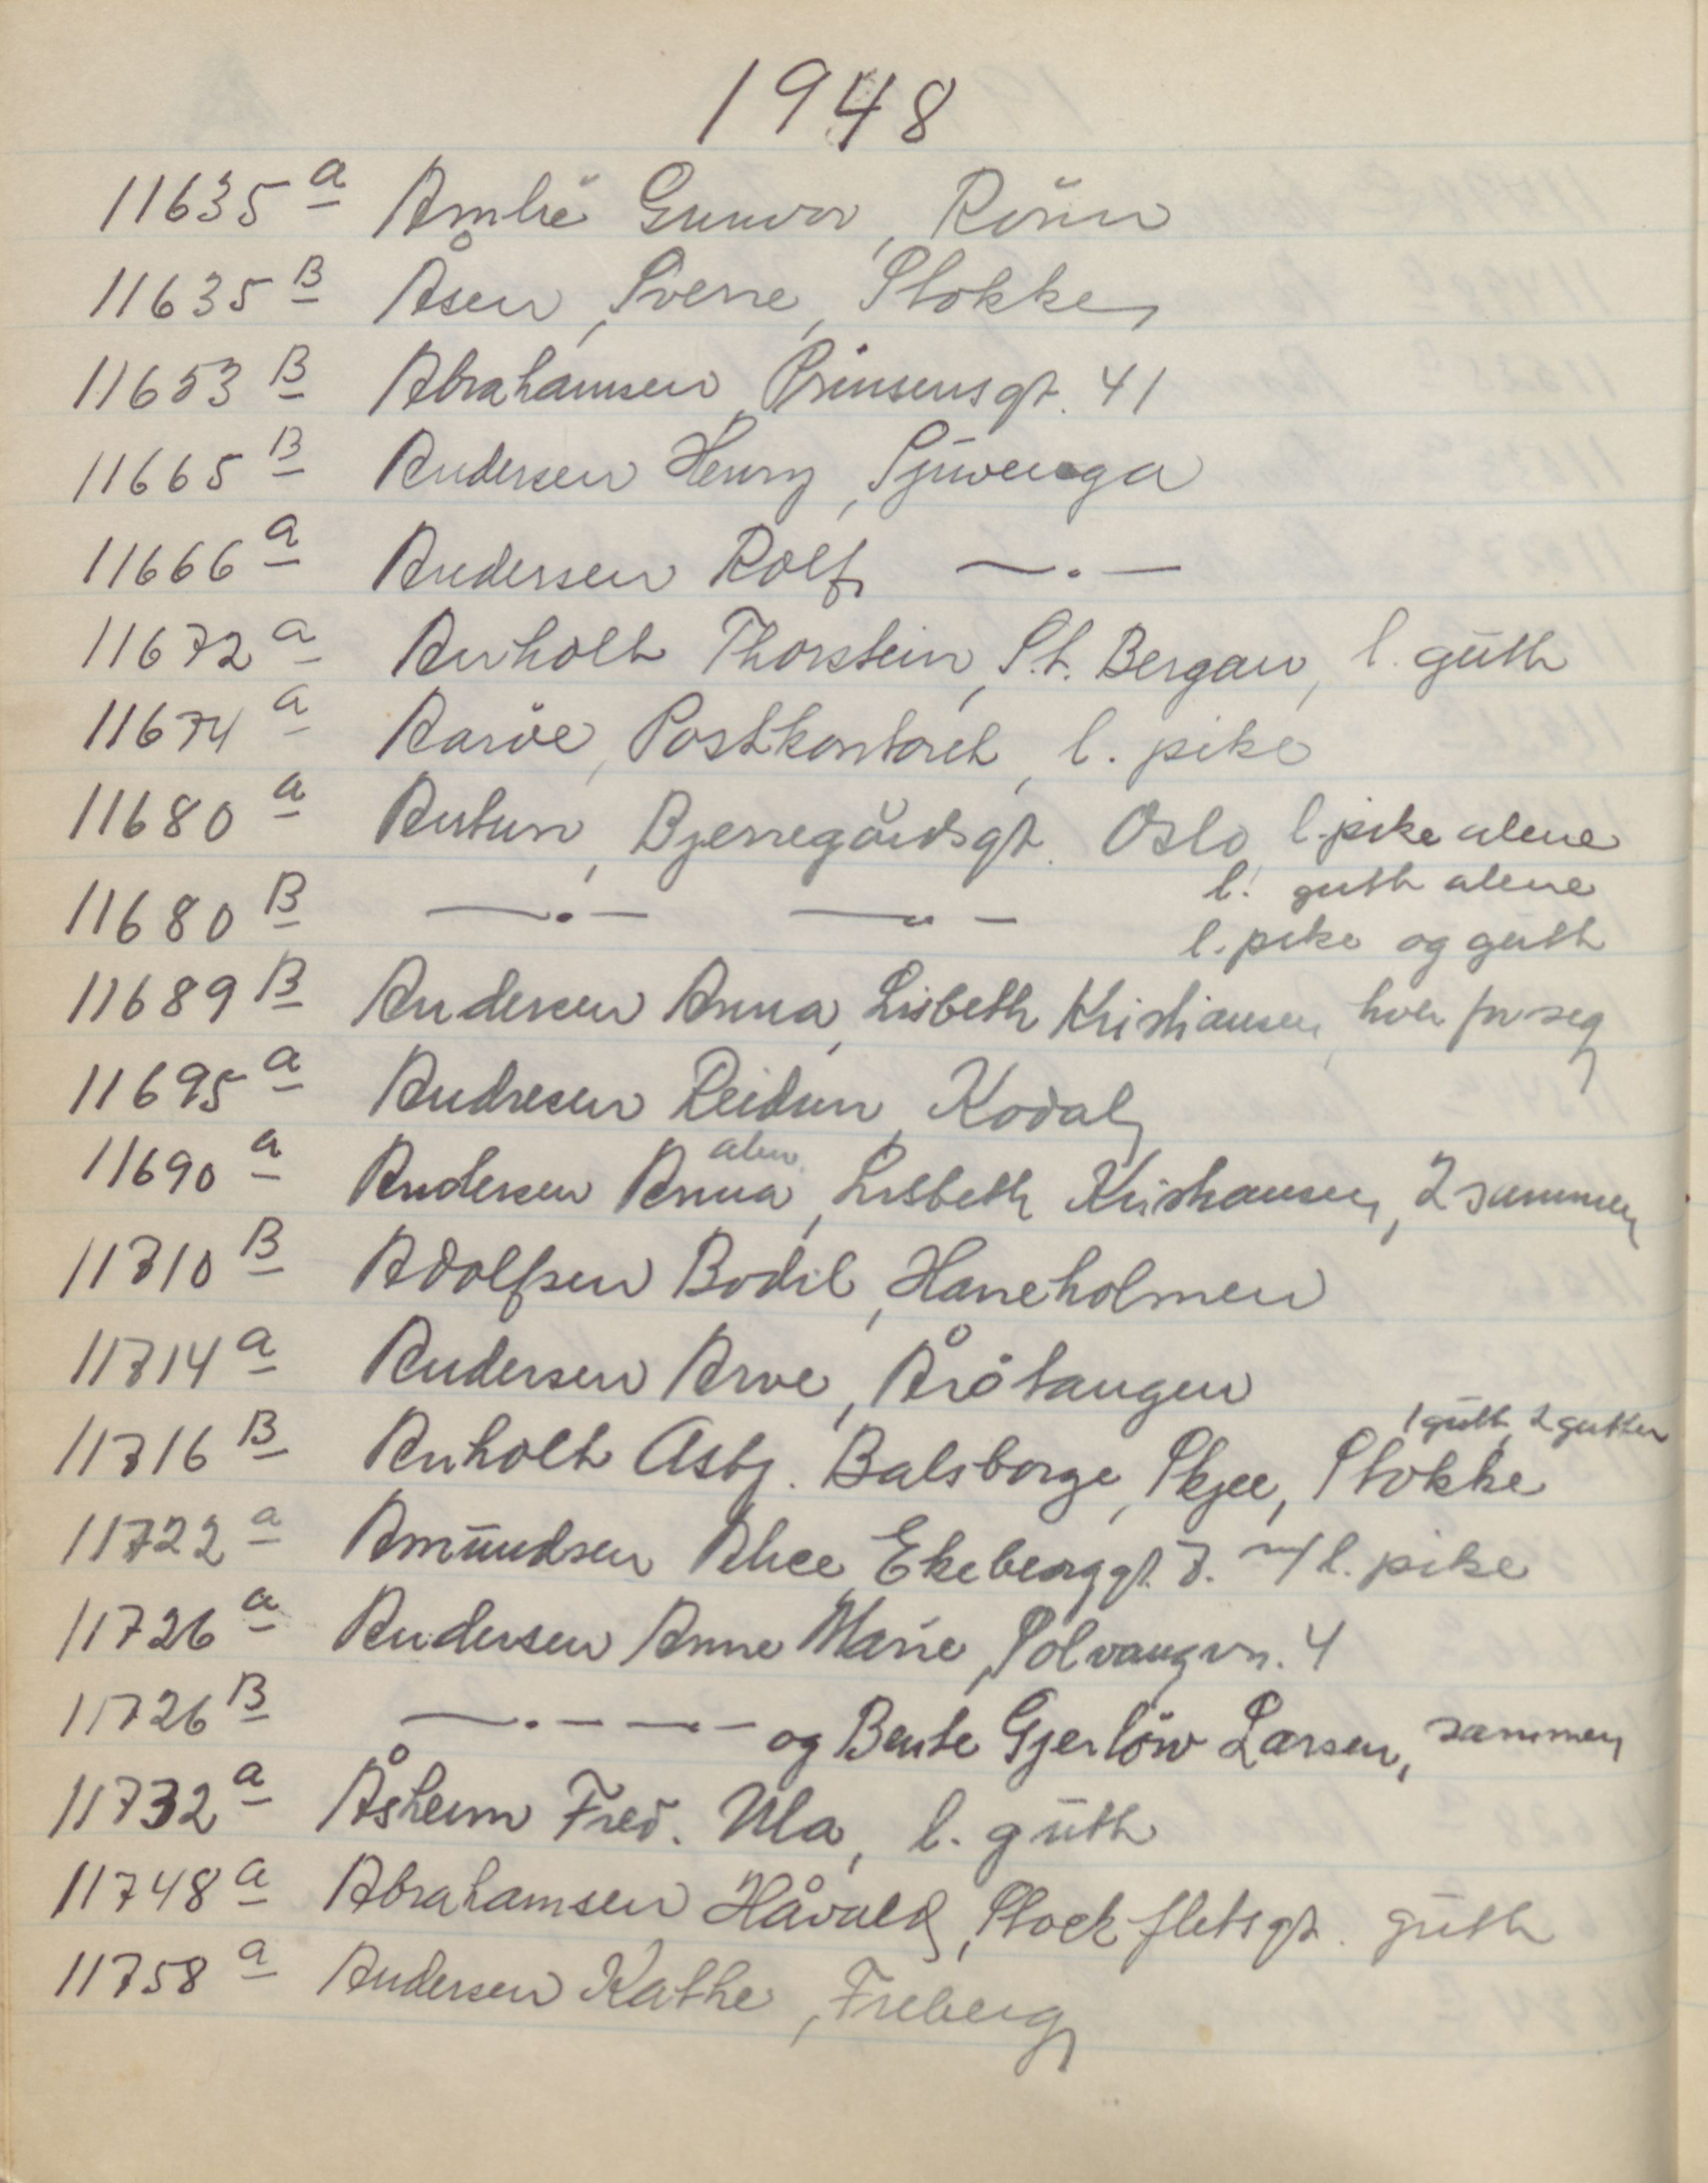 1948
11635 a Amlie Gunvor, Rönn
11635 B Åsen, Sverre, Stokke
11653 B Abrahamsen, Prinsensgt. 41
11665 B Andersen Henry, Sjuvenga
11666 a Andersen Rolf —.—
11672 a Anholt Thorstein, St. Bergan, l. gutt
11674 a Aaröe, Postkontoret, l. pike
11680 a Antun, Bjerregårdsgt. Oslo, l. pike alene
l. gutt alene
11680 B —.— —.—
l. pike og gutt
11689 B Andersen Anna, Lisbeth Kristiansen, hver for seg
11695 a Andresen Reidun, Kodal
alen.
11690 a Andersen Anna, Lisbeth Kristiansen, 2 sammen
11710 B Adolfsen Bodil, Haneholmen
11714 a Andersen Arve, Årötangen
1 gutt, 2 gutter
11716 B Anholt Asbj. Balsborge, Skjee, Stokke
11722 a Amundsen Alice, Ekeberggt. 7. m/l. pike
11726 a Andersen Anne Marie, Solvangvn. 4
11726 B —.— —.— og Bente Gjerlöw Larsen, sammen
11732 a Åsheim Fred. Ula, l. gutt
11748 a Abrahamsen Håvald, Stockfletsgt. gutt
11758 a Andersen Kathe, Freberg